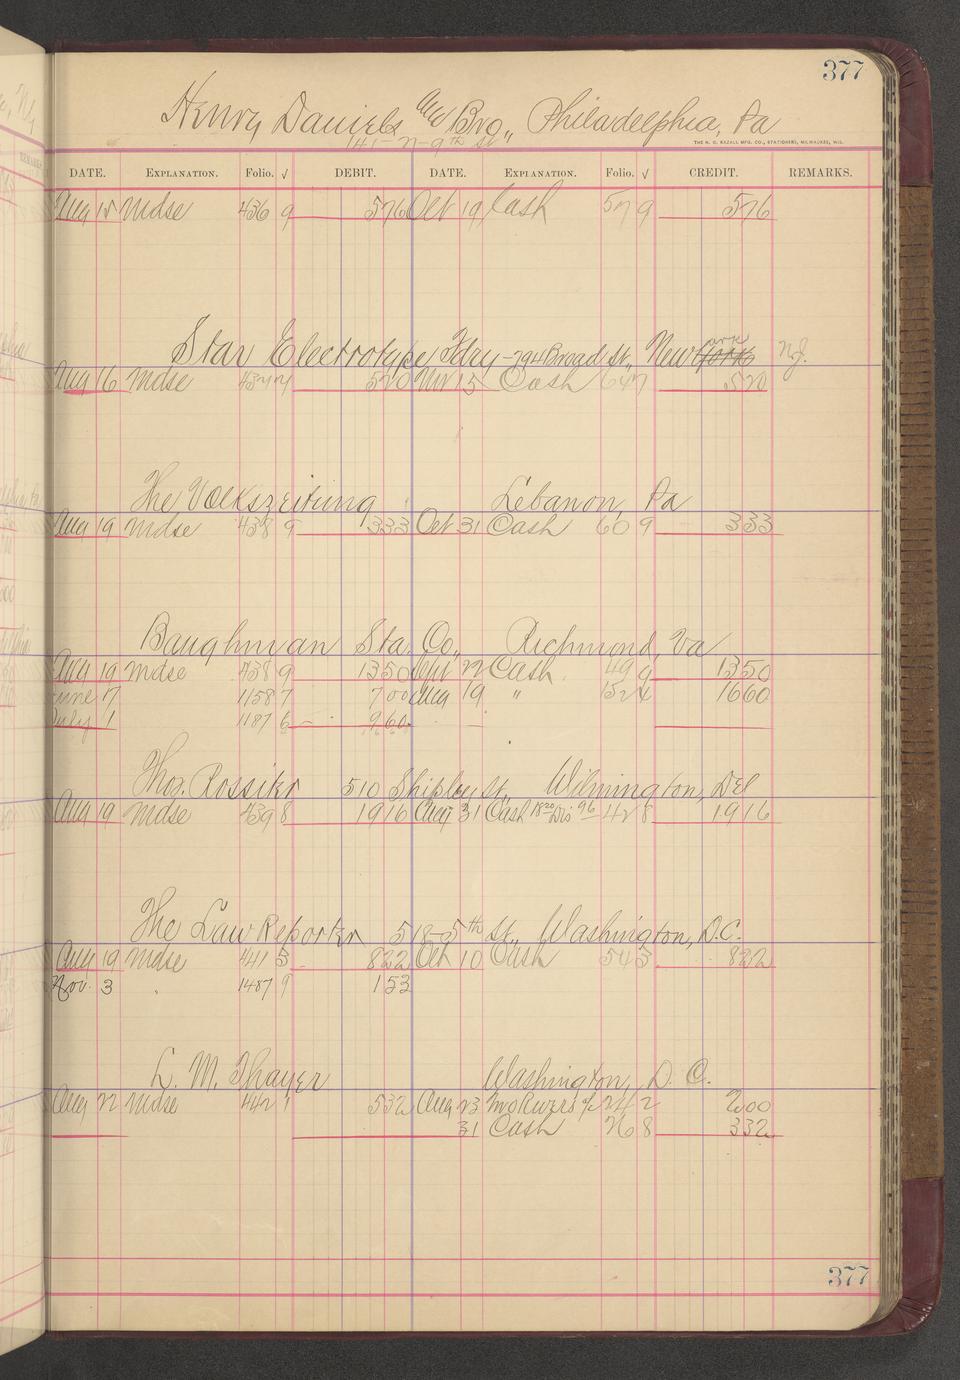 377
Henry Daniels and Bro,, Philadelphia, Pa
141-N-9th St
THE H. G. RAZALL MFG. CO., STATIONERS, MILWAUKEE, WIS.
DATE. EXPLANATION. Folio. √ DEBIT. DATE. EXPLANATION. Folio. √ CREDIT. REMARKS.
Aug 15 Mdse 436 9 576 Oct 19 Cash 57 9 576
Star Electrotype Fdry - 794 Broad St,, New York ark N.J.
Aug 16 Mdse 520 Nov 15 Cash 647 520
The Volkszeitung Lebanon, Pa
Aug 19 Mdse 438 9 333 Oct 31 Cash 60 9 333
Baughman Sta. Co,, Richmond, Va
Aug 19 Mdse 438 9 1350 Sept 22 Cash 49 9 1350
June 7 1158 7 700 Aug 19 " 152 4 1660
July 1 1187 6 960
Thos. Rossiter 510 Shipley St,, Wilmington, Del
Aug 19 Mdse 439 8 1916 Aug 31 Cash 18 20 Dis 96 42 8 1916
The Law Reporter 518-5th St,, Washington, D.C.
Aug 19 Mdse 441 5 822 Oct 10 Cash 545 822
Nov. 3 1487 9 153
L. M. Thayer Washington, D. C.
Aug 22 Mdse 442 1 532 Aug 23 24 2 200
31 Cash 26 8 332
377